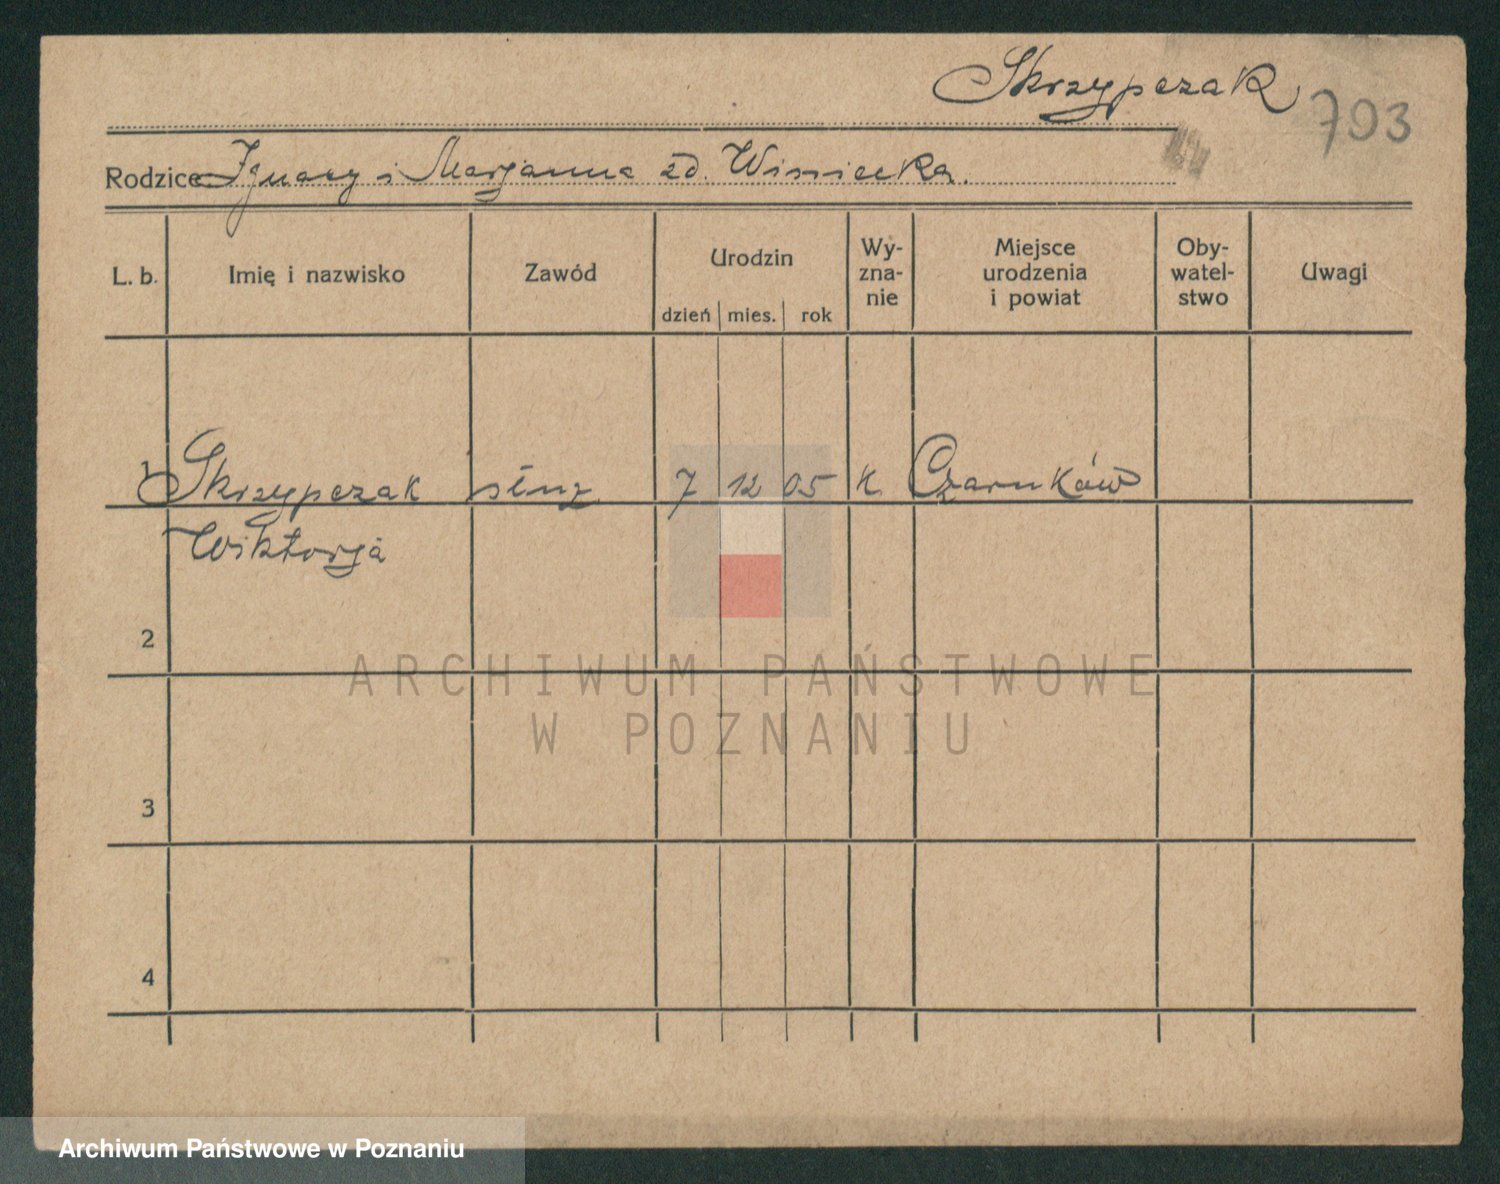 Skrzypczak 793
Rodzice Ignacy i Marjanna zd. Wisniecka.
L. b. Imię i nazwisko Zawód Urodzin Wy-zna-nie Miejsce urodzenia i powiat Oby-watel-stwo Uwagi
dzień mies. rok
1 Skrzypczak służ. 7 12 05 k. Czarnków
Wiktorja
2
3
4
ARCHIWUM PAŃSTWOWE
W POZNANIU
Archiwum Państwowe w Poznaniu